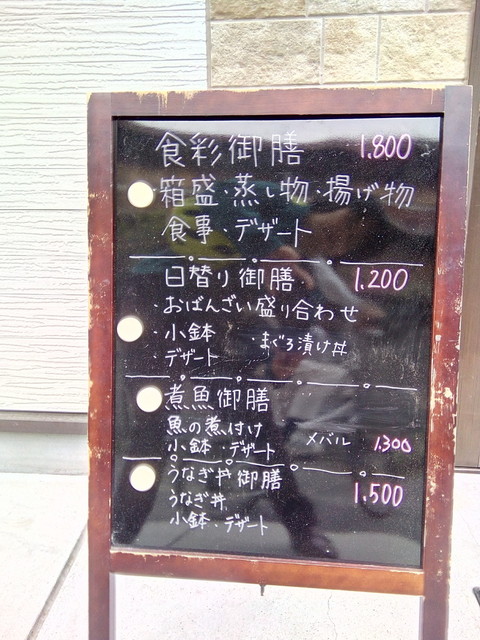 食彩御膳 1.800
箱盛・蒸し物・揚げ物
食事・デザート
日替り御膳 1,200
・おばんざい盛り合わせ
・小鉢 ・まぐろ漬け丼
・デザート
煮魚御膳
魚の煮付け メバル 1.300
小鉢・デザート
うなぎ丼御膳 1,500
うなぎ丼
小鉢・デザート